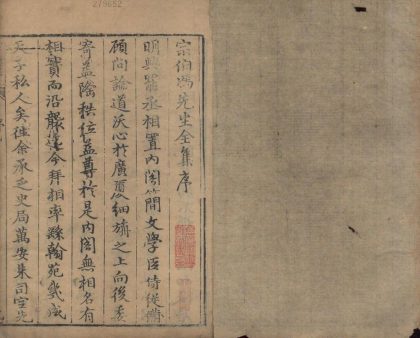 279652
宗伯馮先生全集序
明興罷丞相置內閣簡文學臣侍從備
顧問論道沃心於廣廈細旃之上向後委
寄益隆秩位益尊於是內閣無相名有
相實而沿襲至今拜相率繇翰苑幾成
天子私人矣往余承乏史局萬安朱司空先